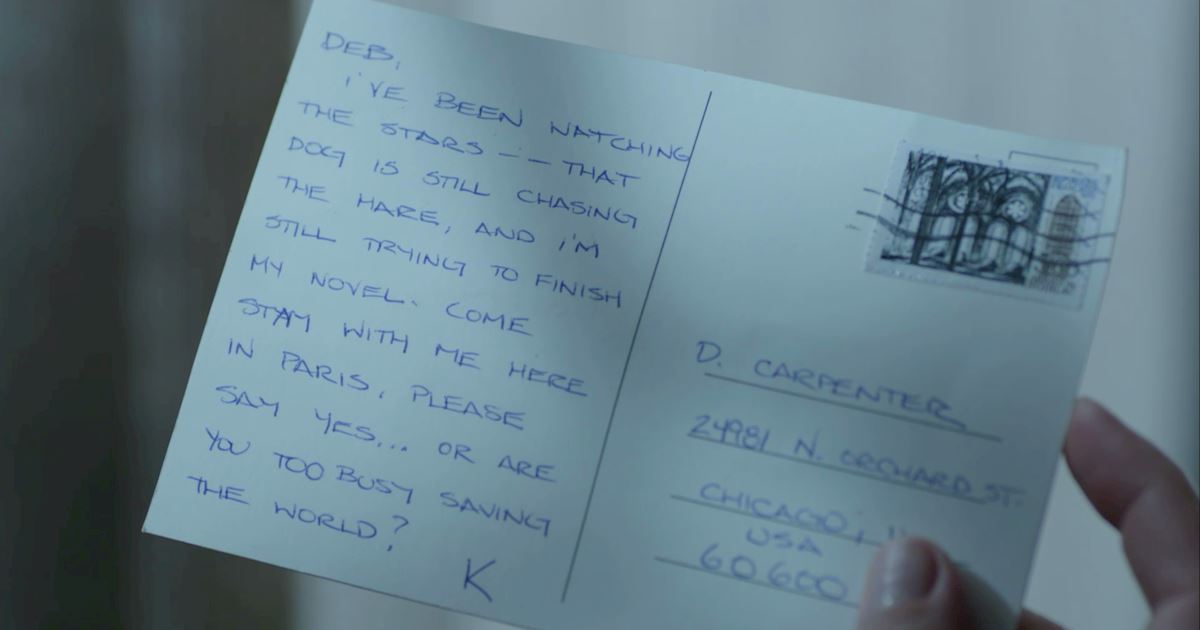 DEB,
I'VE BEEN WATCHING
THE STARS -- THAT
DOG IS STILL CHASING
THE HARE, AND I'M
STILL TRYING TO FINISH
MY NOVEL. COME
STAY WITH ME HERE
IN PARIS. PLEASE
SAY YES... OR ARE
YOU TOO BUSY SAVING
THE WORLD?
K
D. CARPENTER
24981 N. ORCHARD ST.
CHICAGO,
USA
60600